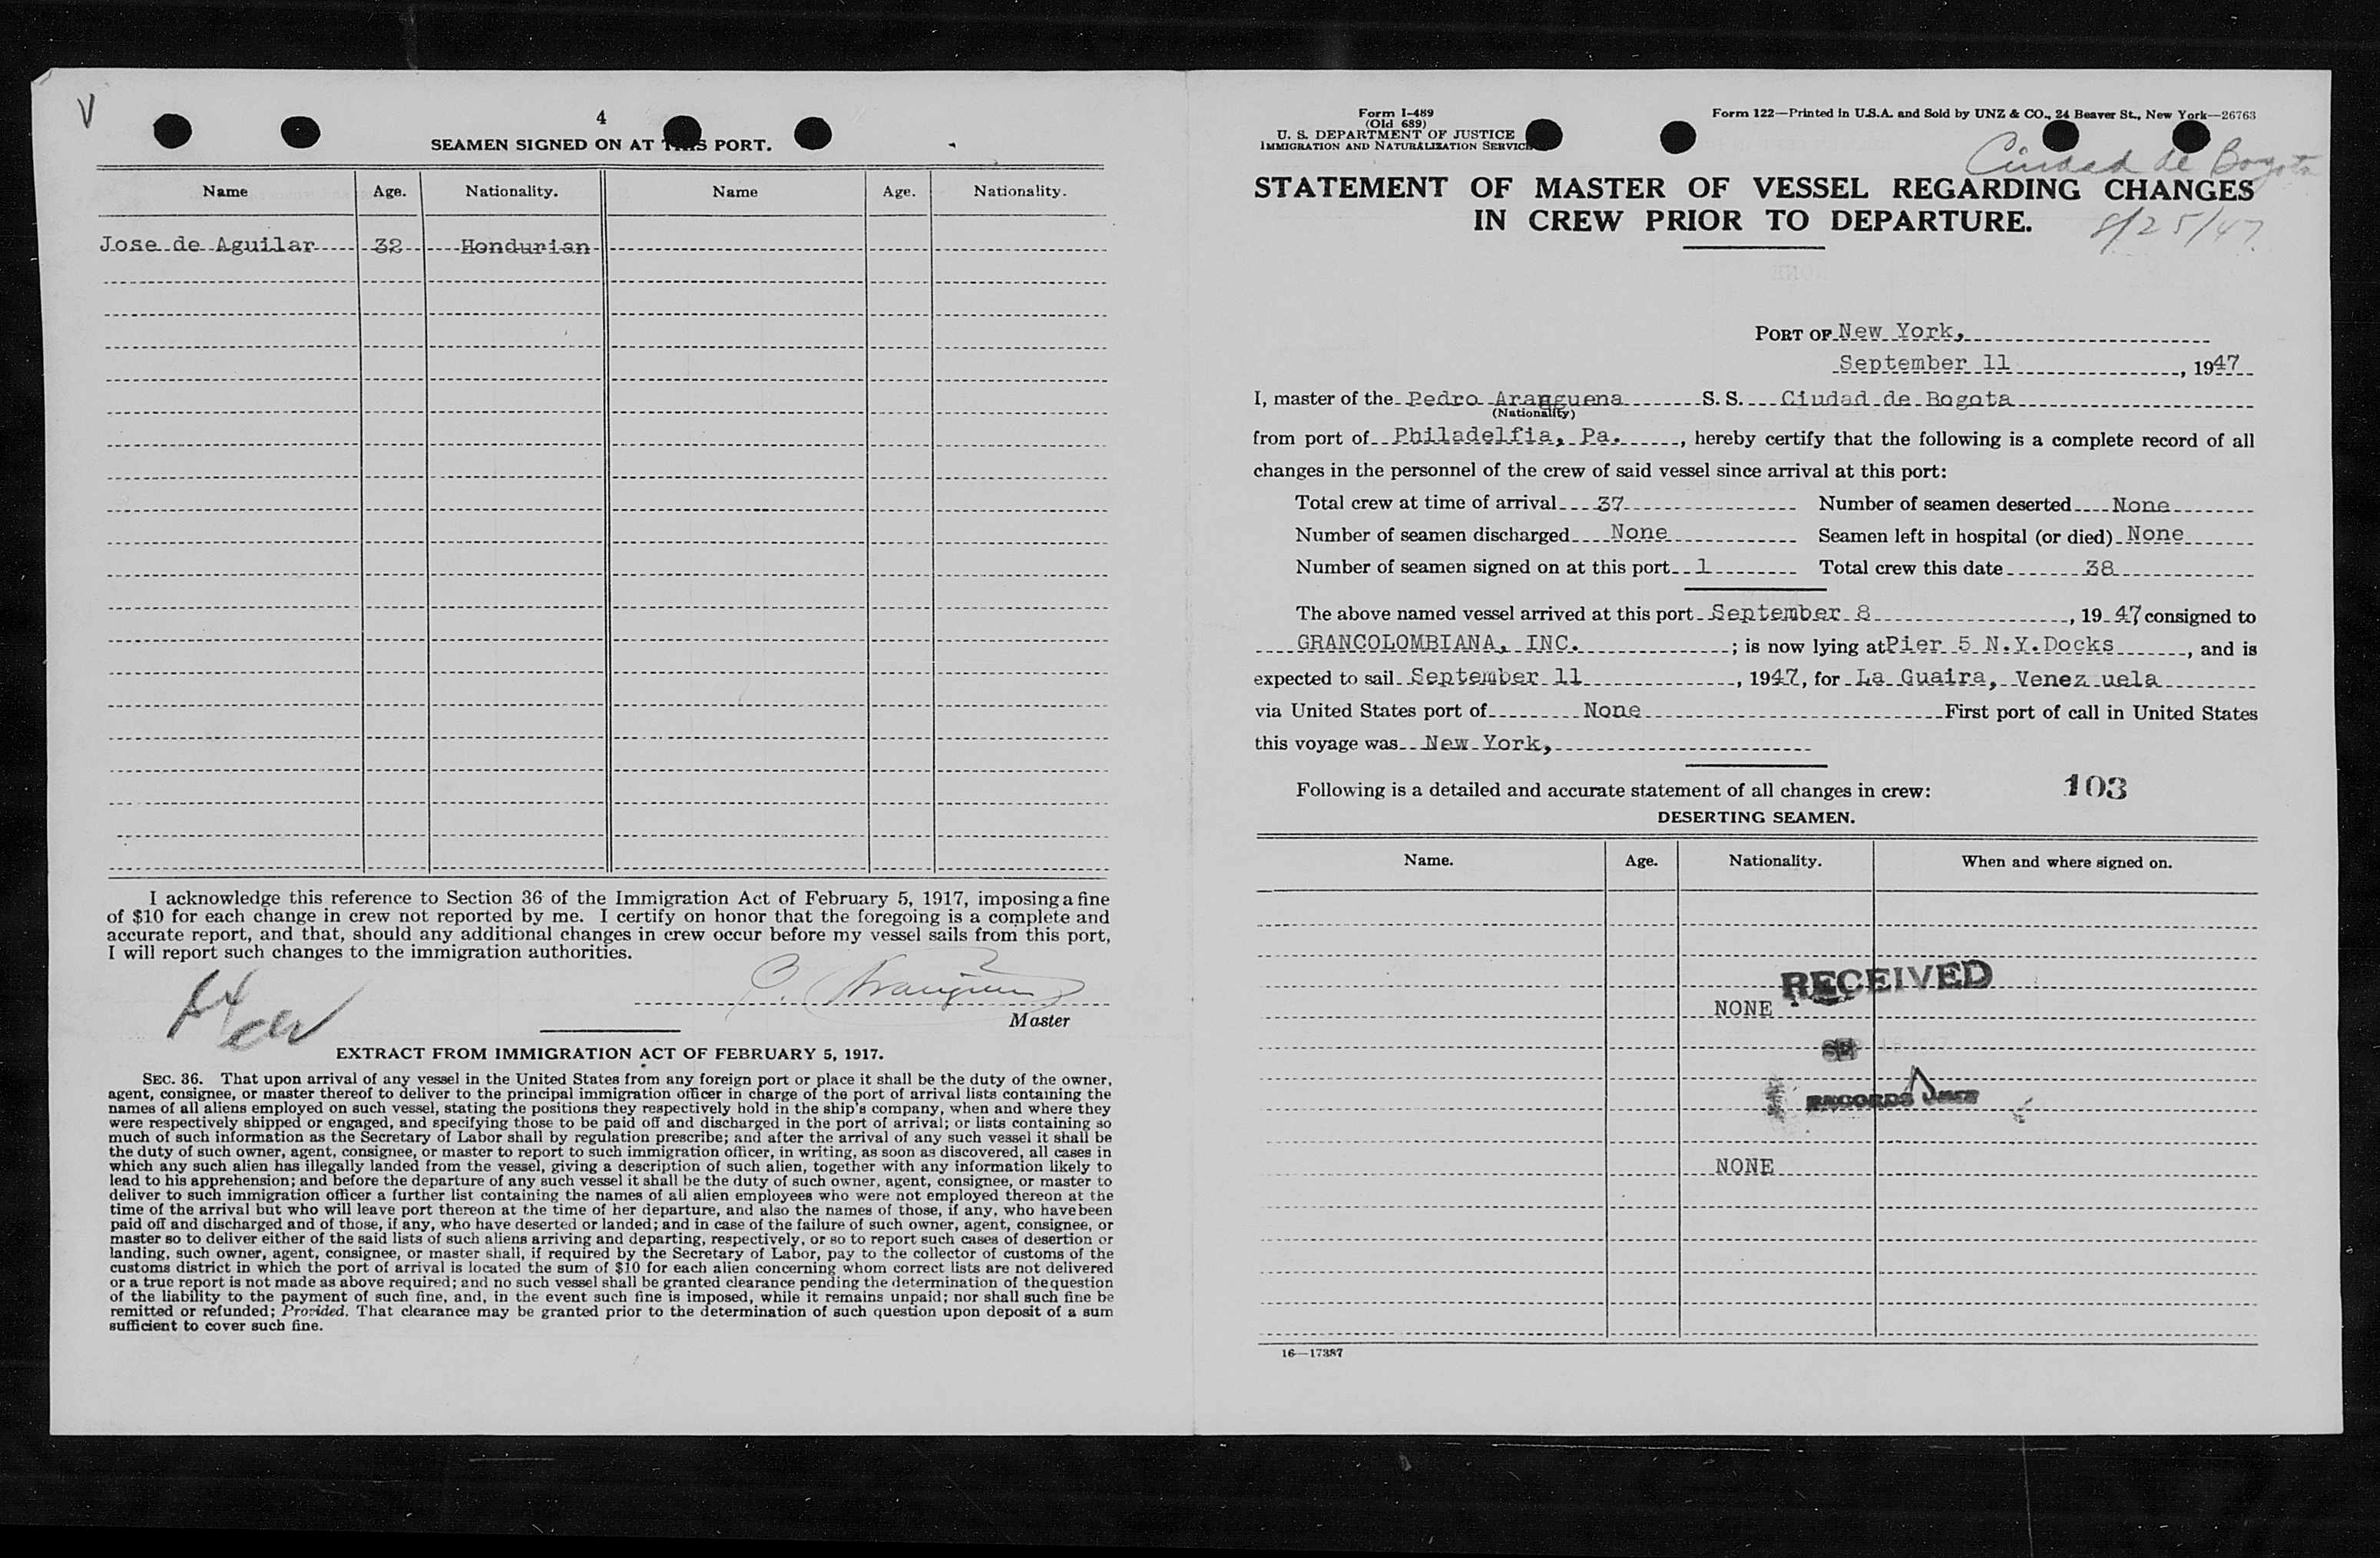 V
4
SEAMEN SIGNED ON AT THIS PORT.
Name Age. Nationality. Name Age. Nationality.
Jose de Aguilar 32 Hondurian
I acknowledge this reference to Section 36 of the Immigration Act of February 5, 1917, imposing a fine
of $10 for each change in crew not reported by me. I certify on honor that the foregoing is a complete and
accurate report, and that, should any additional changes in crew occur before my vessel sails from this port,
I will report such changes to the immigration authorities.
Master
EXTRACT FROM IMMIGRATION ACT OF FEBRUARY 5, 1917.
SEC. 36. That upon arrival of any vessel in the United States from any foreign port or place it shall be the duty of the owner,
agent, consignee, or master thereof to deliver to the principal immigration officer in charge of the port of arrival lists containing the
names of all aliens employed on such vessel, stating the positions they respectively hold in the ship's company, when and where they
were respectively shipped or engaged, and specifying those to be paid off and discharged in the port of arrival; or lists containing so
much of such information as the Secretary of Labor shall by regulation prescribe; and after the arrival of any such vessel it shall be
the duty of such owner, agent, consignee, or master to report to such immigration officer, in writing, as soon as discovered, all cases in
which any such alien has illegally landed from the vessel, giving a description of such alien, together with any information likely to
lead to his apprehension; and before the departure of any such vessel it shall be the duty of such owner, agent, consignee, or master to
deliver to such immigration officer a further list containing the names of all alien employees who were not employed thereon at the
time of the arrival but who will leave port thereon at the time of her departure, and also the names of those, if any, who have been
paid off and discharged and of those, if any, who have deserted or landed; and in case of the failure of such owner, agent, consignee, or
master so to deliver either of the said lists of such aliens arriving and departing, respectively, or so to report such cases of desertion or
landing, such owner, agent, consignee, or master shall, if required by the Secretary of Labor, pay to the collector of customs of the
customs district in which the port of arrival is located the sum of $10 for each alien concerning whom correct lists are not delivered
or a true report is not made as above required; and no such vessel shall be granted clearance pending the determination of the question
of the liability to the payment of such fine, and, in the event such fine is imposed, while it remains unpaid; nor shall such fine be
remitted or refunded; Provided, That clearance may be granted prior to the determination of such question upon deposit of a sum
sufficient to cover such fine.
Form I-489
(Old 689)
U. S. DEPARTMENT OF JUSTICE
IMMIGRATION AND NATURALIZATION SERVICE
Form 122—Printed in U.S.A. and Sold by UNZ & CO., 24 Beaver St., New York—26763
Ciudad de Bogota
STATEMENT OF MASTER OF VESSEL REGARDING CHANGES
IN CREW PRIOR TO DEPARTURE.
8/25/47
PORT OF New York,
September 11, 1947
I, master of the Pedro Aranguena S. S. Ciudad de Bogota
(Nationality)
from port of Philadelfia, Pa., hereby certify that the following is a complete record of all
changes in the personnel of the crew of said vessel since arrival at this port:
Total crew at time of arrival 37 Number of seamen deserted None
Number of seamen discharged None Seamen left in hospital (or died) None
Number of seamen signed on at this port 1 Total crew this date 38
The above named vessel arrived at this port September 8, 1947 consigned to
GRANCOLOMBIANA, INC.; is now lying at Pier 5 N.Y.Docks, and is
expected to sail September 11, 1947, for La Guaira, Venez uela
via United States port of None First port of call in United States
this voyage was New York,
Following is a detailed and accurate statement of all changes in crew: 103
DESERTING SEAMEN.
Name. Age. Nationality. When and where signed on.
RECEIVED
NONE
RECORDS
NONE
16—17387